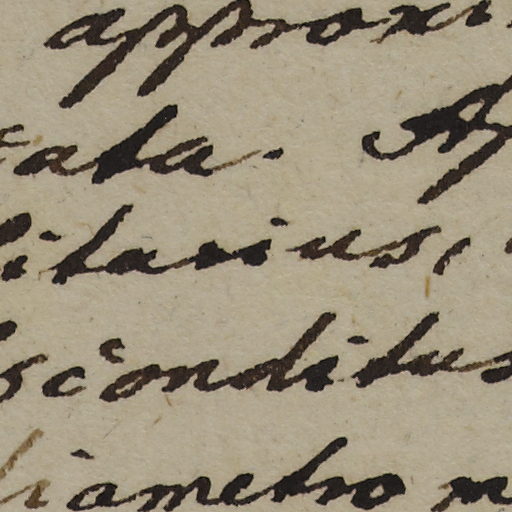 approxi
ata. Ap
litarius,
sconditus
iametro m